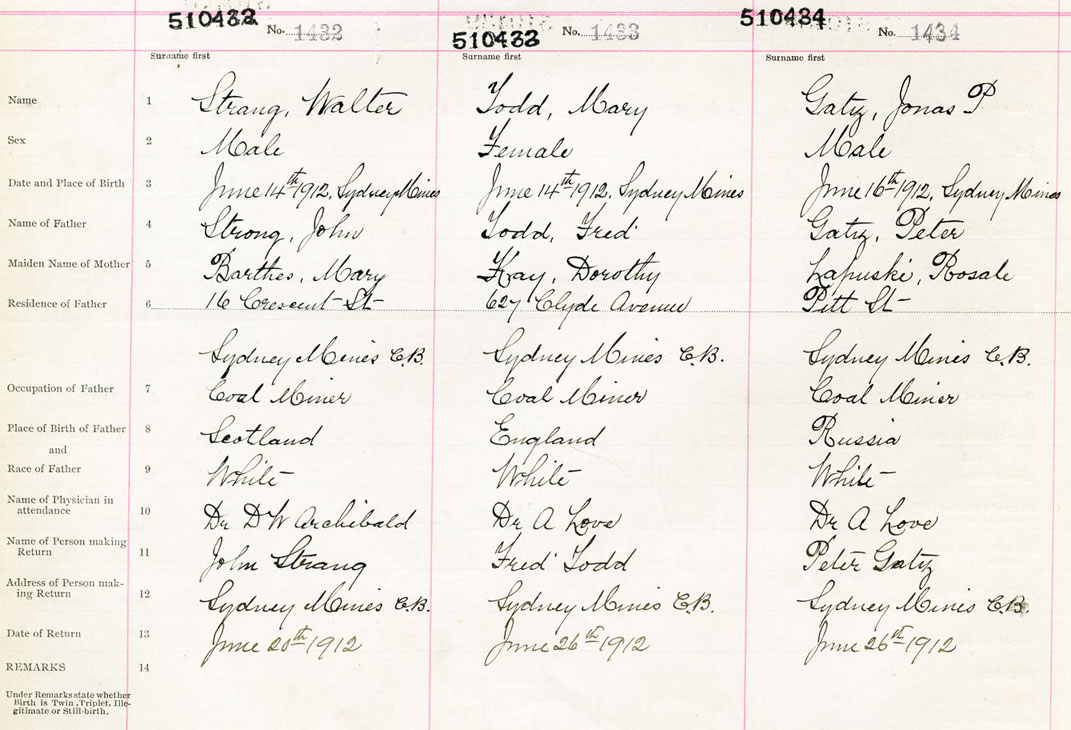 510432 No. 1432 510433 No. 1433 510434 No. 1434
Surname first Surname first Surname first
Name 1 Strang, Walter Todd, Mary Gatz, Jonas P
Sex 2 Male Female Male
Date and Place of Birth 3 June 14th 1912, Sydney Mines June 14th 1912, Sydney Mines June 16th 1912, Sydney Mines
Name of Father 4 Strong, John Todd, Fred Gatz, Peter
Maiden Name of Mother 5 Barthes, Mary Kay, Dorothy Lapuski, Rosale
Residence of Father 6 16 Crescent St 627 Clyde Avenue Pitt St
Sydney Mines C.B. Sydney Mines C.B. Sydney Mines C.B.
Occupation of Father 7 Coal Miner Coal Miner Coal Miner
Place of Birth of Father 8 Scotland England Russia
and
Race of Father 9 White White White
Name of Physician in
attendance 10 Dr D W Archibald Dr A Love Dr A Love
Name of Person making
Return 11 John Strang Fred Todd Peter Gatz
Address of Person mak-
ing Return 12 Sydney Mines C.B. Sydney Mines C.B. Sydney Mines C.B.
Date of Return 13 June 20th 1912 June 26th 1912 June 26th 1912
REMARKS 14
Under Remarks state whether
Birth is Twin, Triplet, Ille-
gitimate or Still-birth.